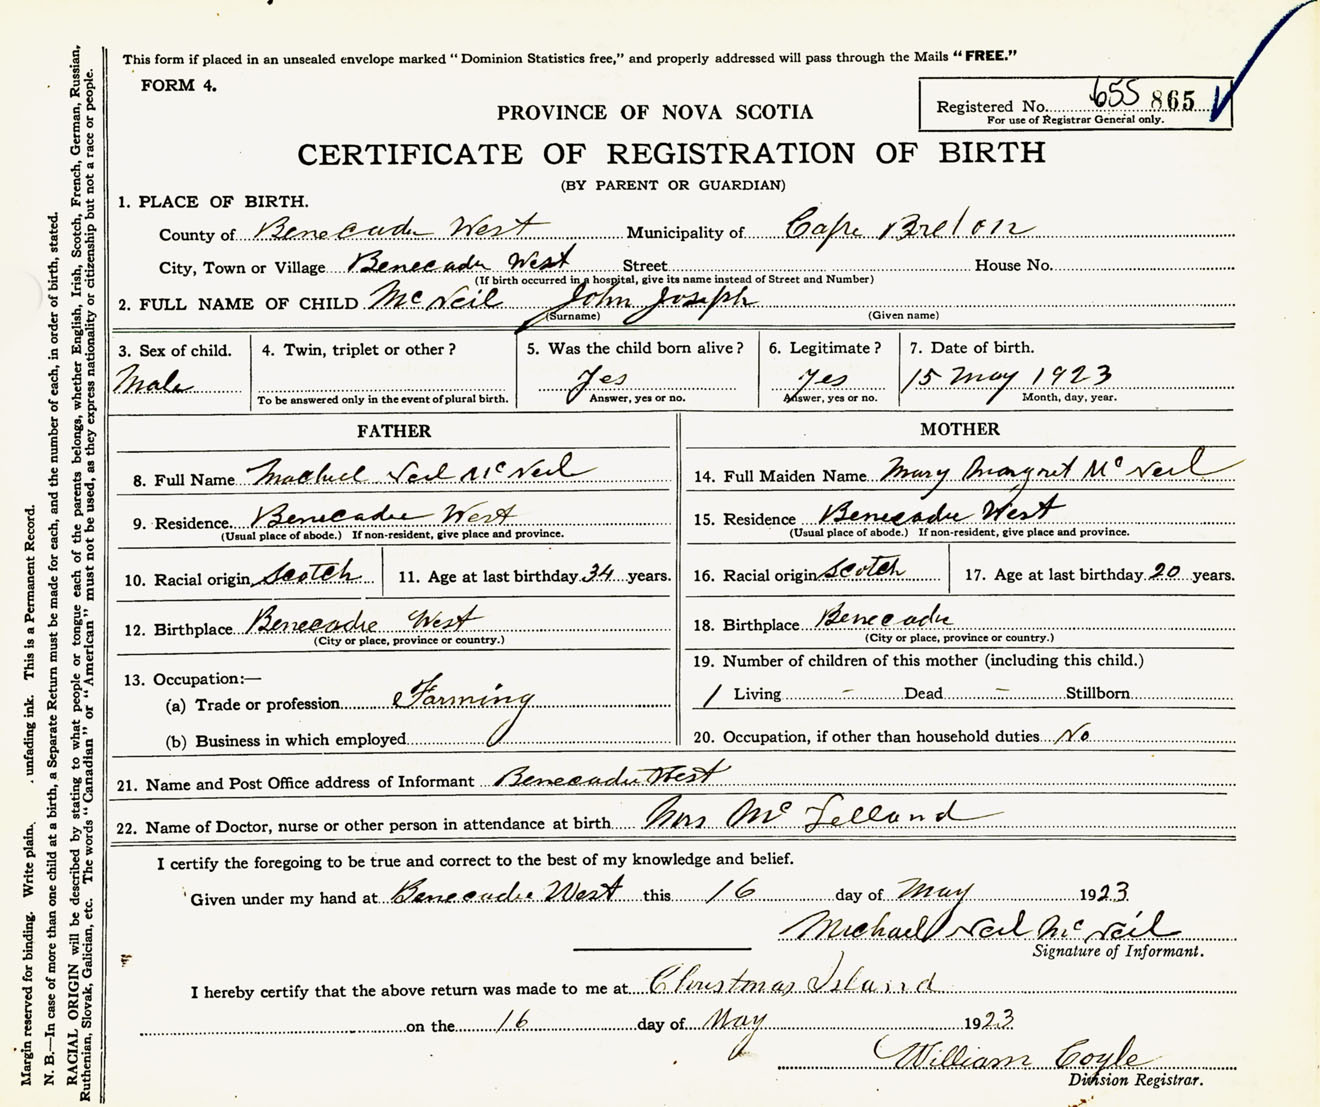 This form if placed in an unsealed envelope marked "Dominion Statistics free," and properly addressed will pass through the Mails "FREE."
FORM 4.
Registered No. 655 865
For use of Registrar General only.
PROVINCE OF NOVA SCOTIA
CERTIFICATE OF REGISTRATION OF BIRTH
(BY PARENT OR GUARDIAN)
1. PLACE OF BIRTH.
County of Benecadie West Municipality of Cape Breton
City, Town or Village Benecadie West Street House No.
(If birth occurred in a hospital, give its name instead of Street and Number)
2. FULL NAME OF CHILD McNeil John Joseph
(Surname) (Given name)
3. Sex of child. 4. Twin, triplet or other? 5. Was the child born alive? 6. Legitimate? 7. Date of birth.
Male Yes Yes 15 May 1923
To be answered only in the event of plural birth. Answer, yes or no. Answer, yes or no. Month, day, year.
FATHER
8. Full Name Neil McNeil
9. Residence Benecadie West
(Usual place of abode.) If non-resident, give place and province.
10. Racial origin Scotch 11. Age at last birthday 34 years.
12. Birthplace Benecadie West
(City or place, province or country.)
13. Occupation:—
(a) Trade or profession Farming
(b) Business in which employed
MOTHER
14. Full Maiden Name Mary Margret McNeil
15. Residence Benecadie West
(Usual place of abode.) If non-resident, give place and province.
16. Racial origin Scotch 17. Age at last birthday 20 years.
18. Birthplace Benecadie
(City or place, province or country.)
19. Number of children of this mother (including this child.)
1 Living - Dead - Stillborn
20. Occupation, if other than household duties No
21. Name and Post Office address of Informant Benecadie West
22. Name of Doctor, nurse or other person in attendance at birth Mrs Mc Lelland
I certify the foregoing to be true and correct to the best of my knowledge and belief.
Given under my hand at Benecadie West this 16 day of May 1923
Michael Neil McNeil
Signature of Informant.
I hereby certify that the above return was made to me at Christmas Island
on the 16 day of May 1923
William Coyle
Division Registrar.
Margin reserved for binding. Write plain. unfading ink. This is a Permanent Record.
N. B.—In case of more than one child at a birth, a Separate Return must be made for each, and the number of each, in order of birth, stated.
RACIAL ORIGIN will be described by stating to what people or tongue each of the parents belongs, whether English, Irish, Scotch, French, German, Russian,
Ruthenian, Slovak, Galician, etc. The words "Canadian" or "American" must not be used, as they express nationality or citizenship but not a race or people.